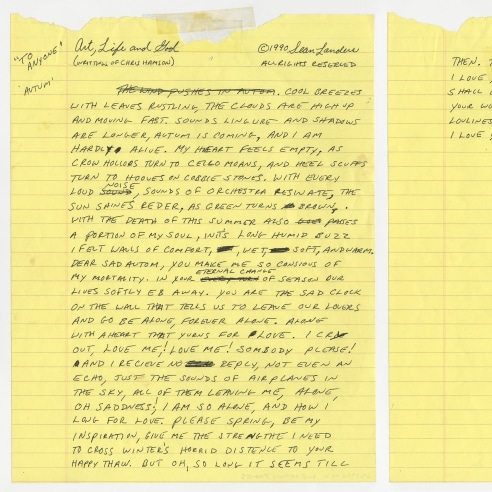 "TO ANYONE"
'AUTUM'
Art, Life and God
(WRITINGS OF CHRIS HAMSON)
©1990 Sean Landers
ALL RIGHTS RESERVED
THE WIND PUSHES IN AUTUM. COOL BREEZES
WITH LEAVES RUSTLING, THE CLOUDS ARE HIGH UP
AND MOVING FAST. SOUNDS LINGURE AND SHADOWS
ARE LONGER, AUTUM IS COMING, AND I AM
HARDLY ALIVE. MY HEART FEELS EMPTY, AS
CROW HOLLORS TURN TO CELLO MOANS, AND HEEL SCUFFS
TURN TO HOOVES ON COBBLE STONES. WITH EVERY
LOUD SOUND NOISE, SOUNDS OF ORCHESTRA RESINATE, THE
SUN SHINES REDER, AS GREEN TURNS BROWN,.
WITH THE DEATH OF THIS SUMMER ALSO PASES
A PORTION OF MY SOUL, IN IT'S LONG HUMID BUZZ
I FELT WALLS OF COMFORT, WET, SOFT, AND WARM.
DEAR SAD AUTOM, YOU MAKE ME SO CONSIOUS OF
MY MORTALITY. IN YOUR ETERNAL CHANGE EVERY TURN OF SEASON OUR
LIVES SOFTLY EB AWAY. YOU ARE THE SAD CLOCK
ON THE WALL THAT TELLS US TO LEAVE OUR LOVERS
AND GO BE ALONE, FOREVER ALONE. ALONE
WITH A HEART THAT YURNS FOR LOVE. I CRY
OUT, LOVE ME, ! LOVE ME! SOMBODY PLEASE!
AND I RECIEVE NO REPLY, NOT EVEN AN
ECHO, JUST THE SOUNDS OF AIRPLANES IN
THE SKY, ALL OF THEM LEAVING ME, ALONE,
OH SADDNESS! I AM SO ALONE, AND HOW I
LONG FOR LOVE. PLEASE SPRING, BE MY
INSPIRATION, GIVE ME THE STRENGTHE I NEED
TO CROSS WINTER'S HORRID DISTENCE TO YOUR
HAPPY THAW. BUT OH, SO LONG IT SEEMS TILL
THEN. T
I LOVE,
SHALL
YOUR W
LOVLINES
I LOVE